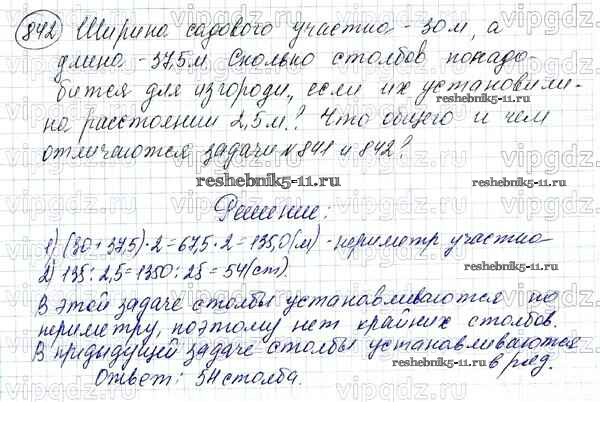 842 Ширина садового участка - 30 м, а
длина - 37,5 м. Сколько столбов понадо-
бится для изгороди, если их установили-
reshebnik5-11.ru
на расстоянии 2,5 м? Что общего и чем
отличаются задачи №841 и 842?
reshebnik5-11.ru
Решение:
1) (30+37,5)·2=67,5·2=135,0(м) - периметр участка
2) 135:2,5=1350:25=54(ст).
В этой задаче столбы устанавливаются по
периметру, поэтому нет крайних столбов.
В предидущей задаче столбы устанавливаются
reshebnik5-11.ru
в ряд.
Ответ: 54 столба.
vipgdz.ru